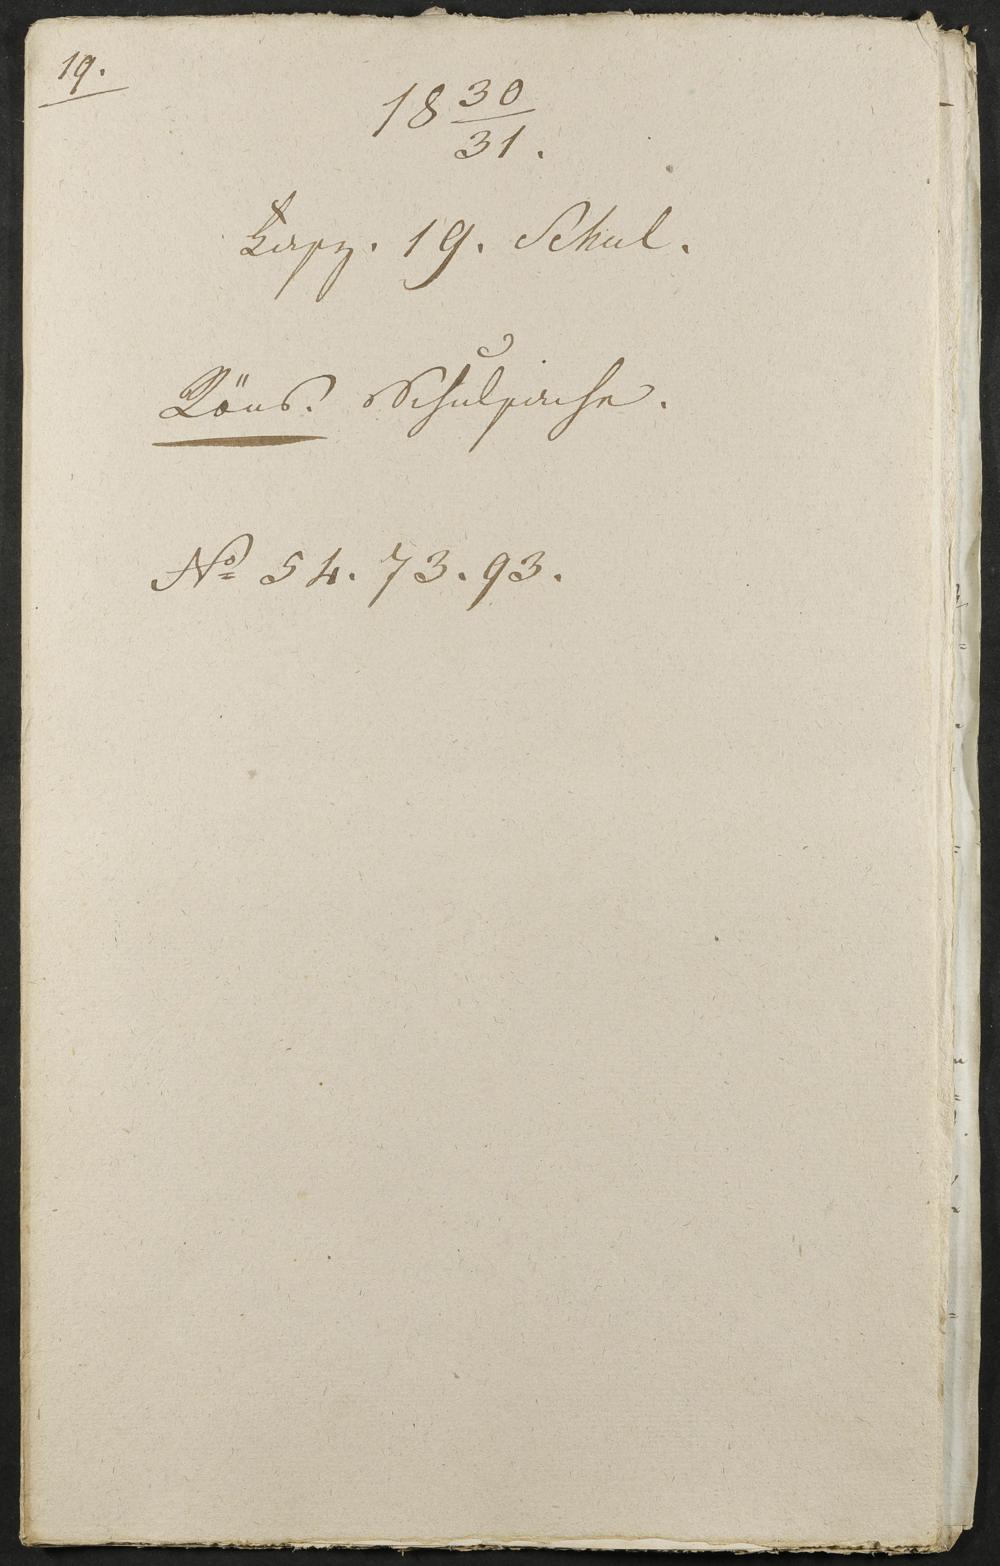 19.
18 30/31.
Fasz. 19. Schul.
Röns. Schulsache.
No 54. 73. 93.